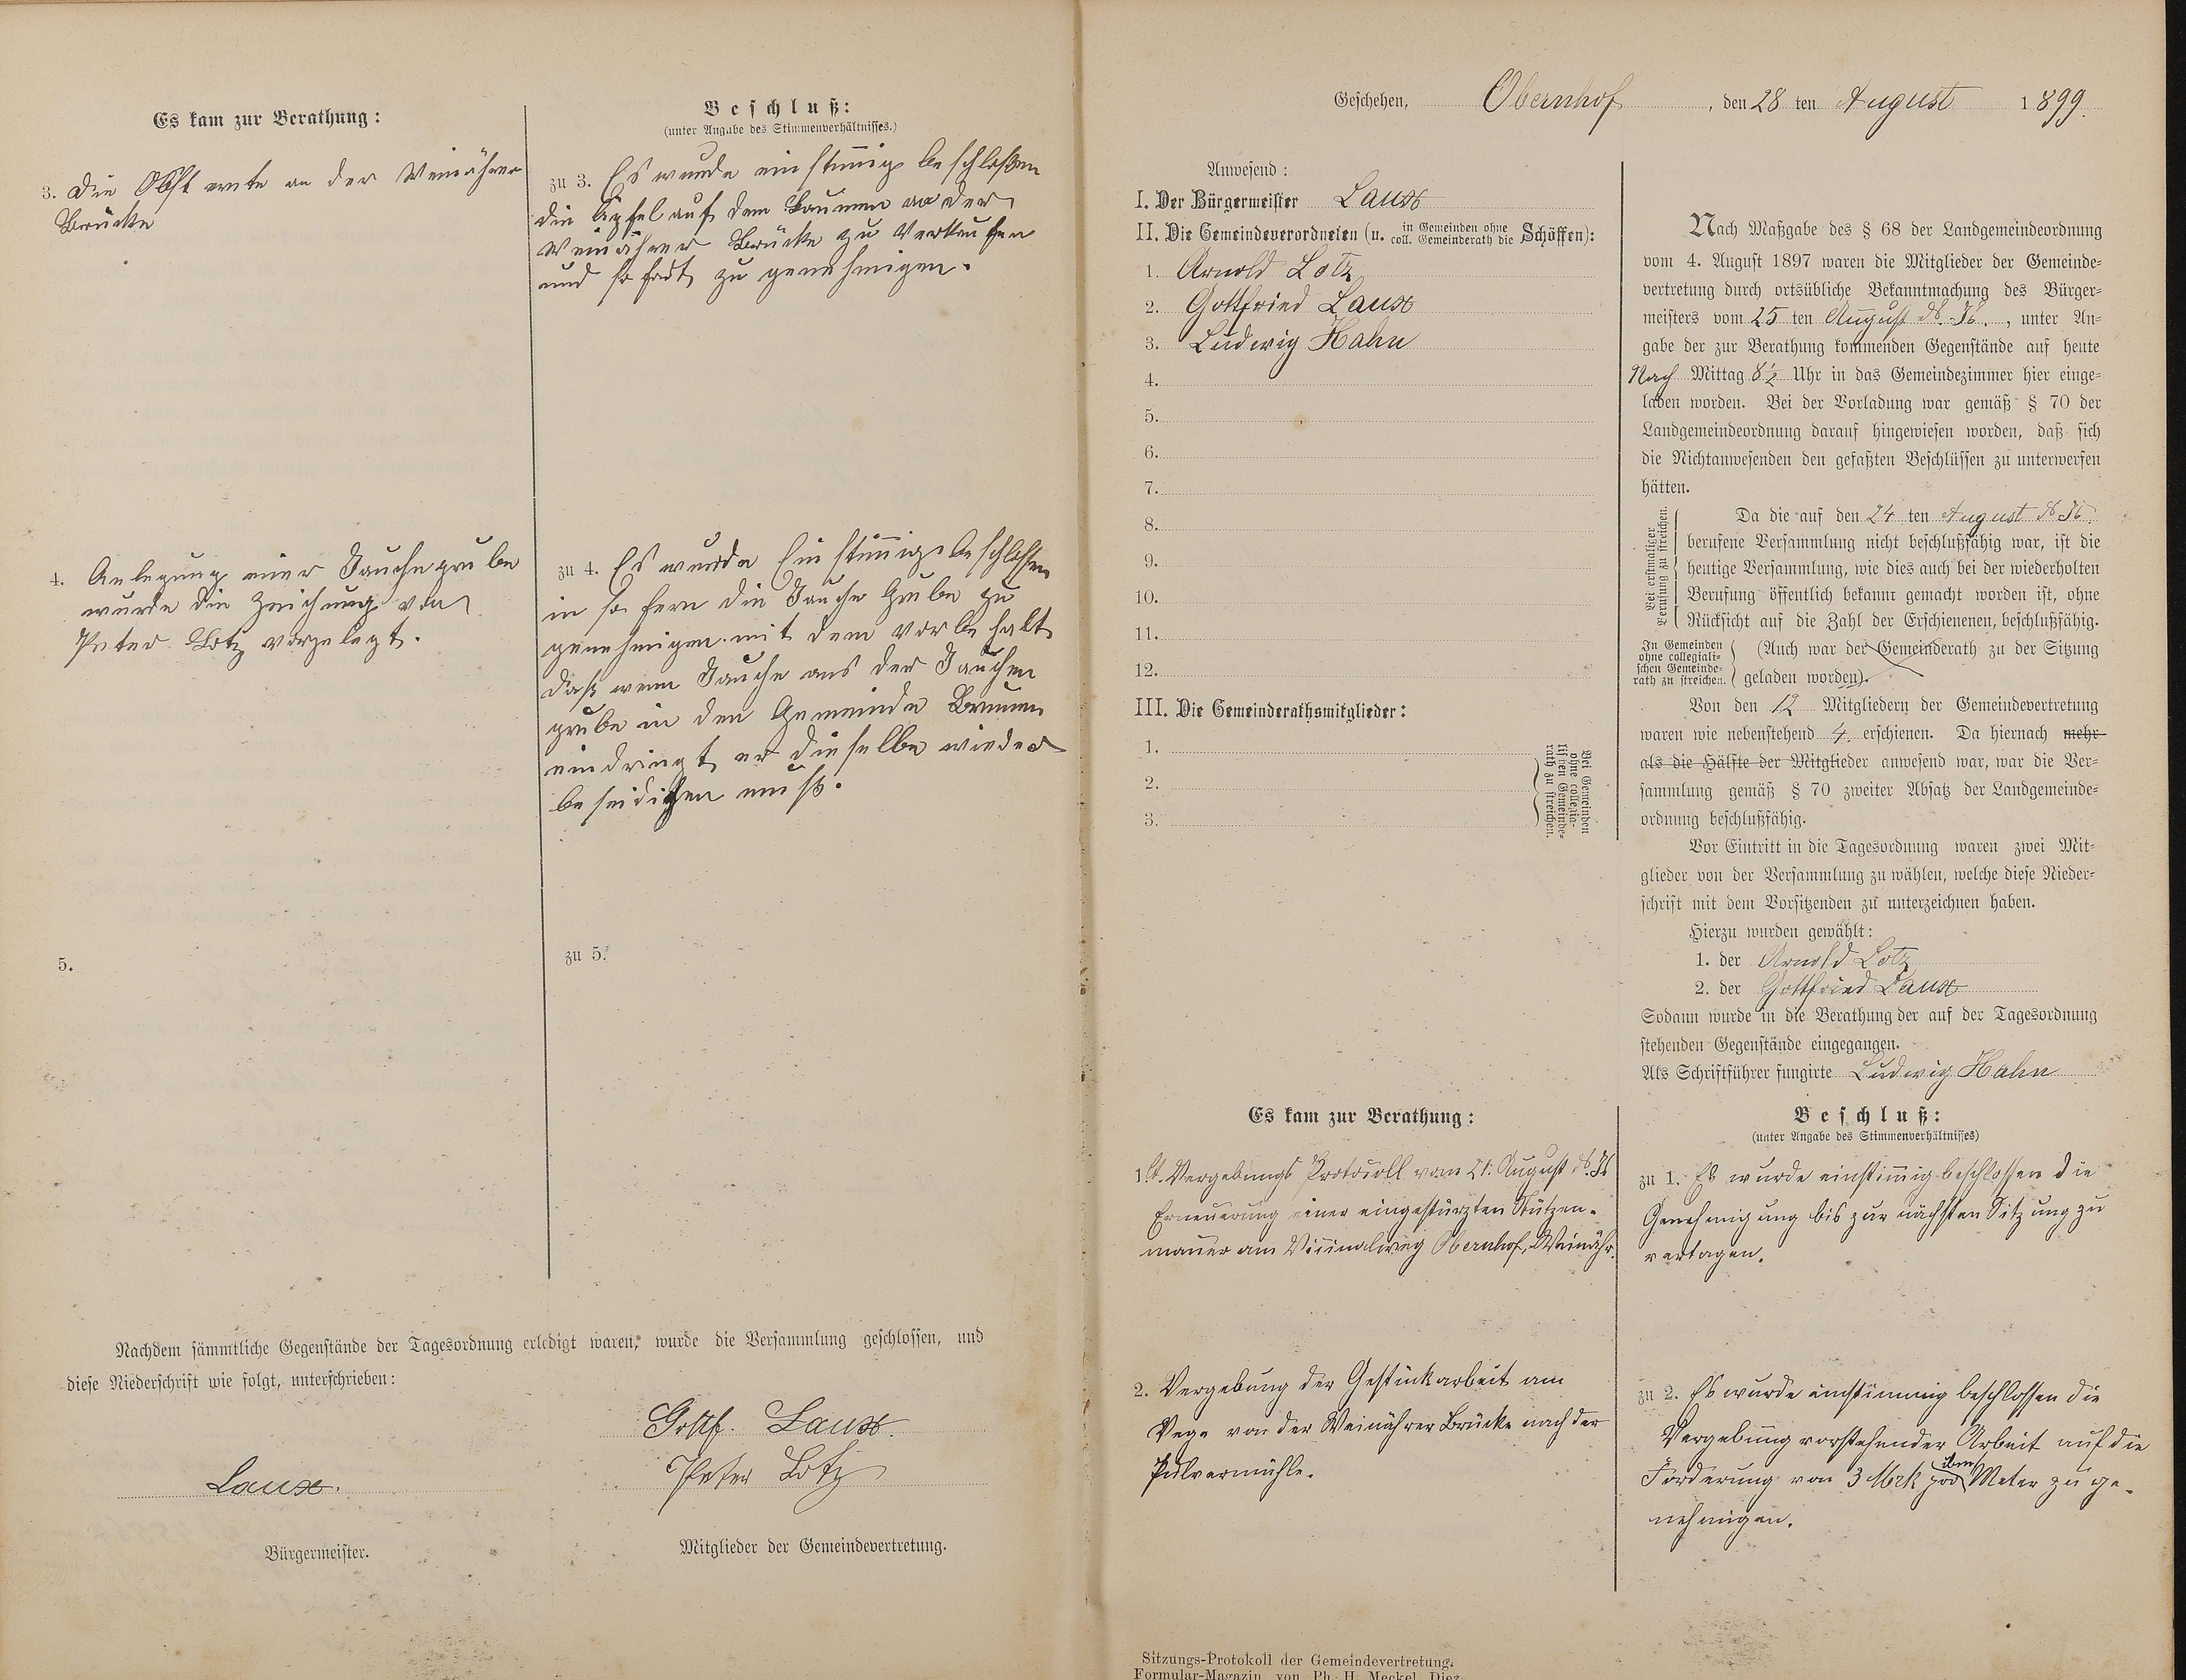 Es kam zur Berathung:
3. Die Obst ernte an der Weinährer
Brücke
4. Anlegung einer Jauchegrube
wurde die Zeichnung von
Peter Lotz vorgelegt.
5.
Beschluß:
(unter Angabe des Stimmenverhältnisses.)
zu 3. Es wurde einstimmig beschloßen
die Äpfel auf dem Baumen an der
Weinährer Brücke zu Verkaufen
und so fort zu genehmigen.
zu 4. Es wurde Einstimmig beschlossen
in so fern die Jauche Grube zu
genehmigen mit dem vorbehalt
daß wenn Jauche aus der Jauchen
grube in den Gemeinde Brunnen
eindringt er dieselbe wieder
beseidichen muß.
zu 5.
Nachdem sämmtliche Gegenstände der Tagesordnung erledigt waren, wurde die Versammlung geschlossen, und
diese Niederschrift wie folgt, unterschrieben:
Gottf. Laux.
Laux.
Peter Lotz
Bürgermeister.
Mitglieder der Gemeindevertretung.
Geschehen, Obernhof, den 28 ten August 1899.
Anwesend:
I. Der Bürgermeister Laux
II. Die Gemeindeverordneten (u. in Gemeinden ohne coll. Gemeinderath die Schöffen):
1. Arnold Lotz
2. Gottfried Laux
3. Ludwig Hahn
4.
5.
6.
7.
8.
9.
10.
11.
12.
III. Die Gemeinderathsmitglieder:
1.
2.
3.
Bei Gemeinden
ohne collegia-
lischen Gemeinde-
rath zu streichen.
Nach Maßgabe des § 68 der Landgemeindeordnung
vom 4. August 1897 waren die Mitglieder der Gemeinde-
vertretung durch ortsübliche Bekanntmachung des Bürger-
meisters vom 25 ten August ds. Js., unter An-
gabe der zur Berathung kommenden Gegenstände auf heute
Nach Mittag 8½ Uhr in das Gemeindezimmer hier einge-
laden worden. Bei der Vorladung war gemäß § 70 der
Landgemeindeordnung darauf hingewiesen worden, daß sich
die Nichtanwesenden den gefaßten Beschlüssen zu unterwerfen
hätten.
Bei erstmaliger
Berufung zu streichen.
Da die auf den 24 ten August ds Js.
berufene Versammlung nicht beschlußfähig war, ist die
heutige Versammlung, wie dies auch bei der wiederholten
Berufung öffentlich bekannt gemacht worden ist, ohne
Rücksicht auf die Zahl der Erschienenen, beschlußfähig.
In Gemeinden
ohne collegiali-
schen Gemeinde-
rath zu streichen.
(Auch war der Gemeinderath zu der Sitzung
geladen worden).
Von den 12 Mitgliedern der Gemeindevertretung
waren wie nebenstehend 4. erschienen. Da hiernach mehr
als die Hälfte der Mitglieder anwesend war, war die Ver-
sammlung gemäß § 70 zweiter Absatz der Landgemeinde-
ordnung beschlußfähig.
Vor Eintritt in die Tagesordnung waren zwei Mit-
glieder von der Versammlung zu wählen, welche diese Nieder-
schrift mit dem Vorsitzenden zu unterzeichnen haben.
Hierzu wurden gewählt:
1. der Arnold Lotz
2. der Gottfried Laux
Sodann wurde in die Berathung der auf der Tagesordnung
stehenden Gegenstände eingegangen.
Als Schriftführer fungirte Ludwig Hahn
Es kam zur Berathung:
1. lt. Vergebungs Protocoll vom 21. August ds. Js
Erneuerung einer eingestürzten Stützen-
mauer am Vicinalweg Obernhof, Weinähr.
2. Vergebung der Gestückarbeit am
Wege von der Weinährer Brücke nach der
Pulvermühle.
Beschluß:
(unter Angabe des Stimmenverhältnisses)
zu 1. Es wurde einstimmig beschlossen die
Genehmigung bis zur nächsten Sitzung zu
vertagen.
zu 2. Es wurde einstimmig beschlossen die
Vergebung vorstehender Arbeit auf die
Forderung von 3 Mrk pro Meter zu ge-
nehmigen.
Sitzungs-Protokoll der Gemeindevertretung.
Formular-Magazin von Ph. H. Meckel, Diez.